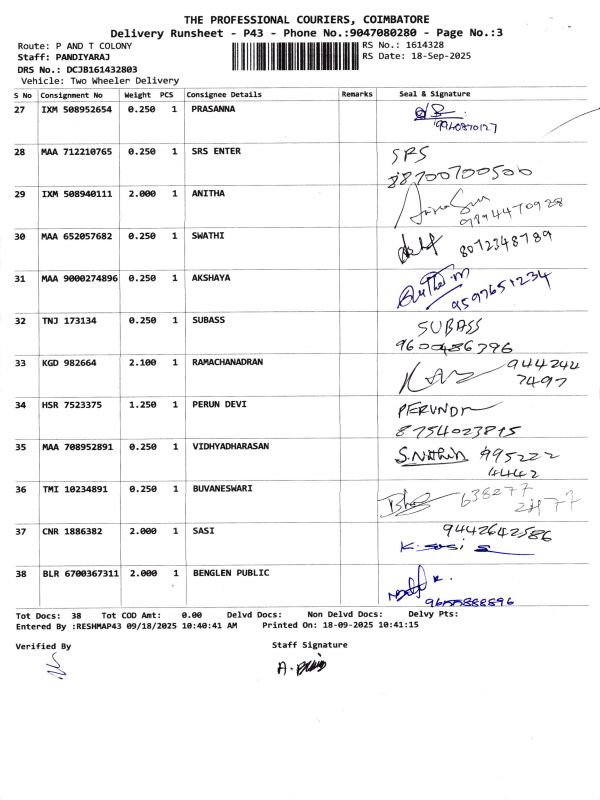 THE PROFESSIONAL COURIERS, COIMBATORE
Delivery Runsheet - P43 - Phone No.:9047080280 - Page No.:3
Route: P AND T COLONY
RS No.: 1614328
Staff: PANDIYARAJ
RS Date: 18-Sep-2025
DRS No.: DCJB161432803
Vehicle: Two Wheeler Delivery
S No Consignment No Weight PCS Consignee Details Remarks Seal & Signature
27 IXM 508952654 0.250 1 PRASANNA
9940870127
28 MAA 712210765 0.250 1 SRS ENTER SRS
88700700500
29 IXM 508940111 2.000 1 ANITHA
9894470928
30 MAA 652057682 0.250 1 SWATHI 8072348789
31 MAA 9000274896 0.250 1 AKSHAYA
9597651234
32 TNJ 173134 0.250 1 SUBASS SUBASS
9600486796
33 KGD 982664 2.100 1 RAMACHANADRAN 944244
7497
34 HSR 7523375 1.250 1 PERUN DEVI
8754023815
35 MAA 708952891 0.250 1 VIDHYADHARASAN S.Nithin 995222
4442
36 TMI 10234891 0.250 1 BUVANESWARI 638277
37 CNR 1886382 2.000 1 SASI 9442642586
K. Sasi
38 BLR 6700367311 2.000 1 BENGLEN PUBLIC
Tot Docs: 38 Tot COD Amt: 0.00 Delvd Docs: Non Delvd Docs: Delvy Pts:
Entered By :RESHMAP43 09/18/2025 10:40:41 AM Printed On: 18-09-2025 10:41:15
Verified By Staff Signature